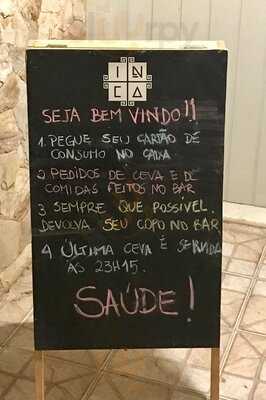 INCA
SEJA BEM VINDO!!
1. PEGUE SEU CARTÃO DE
CONSUMO NO CAIXA
2 PEDIDOS DE CEVA E DE
COMIDAS FEITOS NO BAR
3 SEMPRE QUE POSSÍVEL,
DEVOLVA SEU COPO NO BAR
4 ÚLTIMA CEVA É SERVIDA
ÀS 23H15.
SAÚDE!